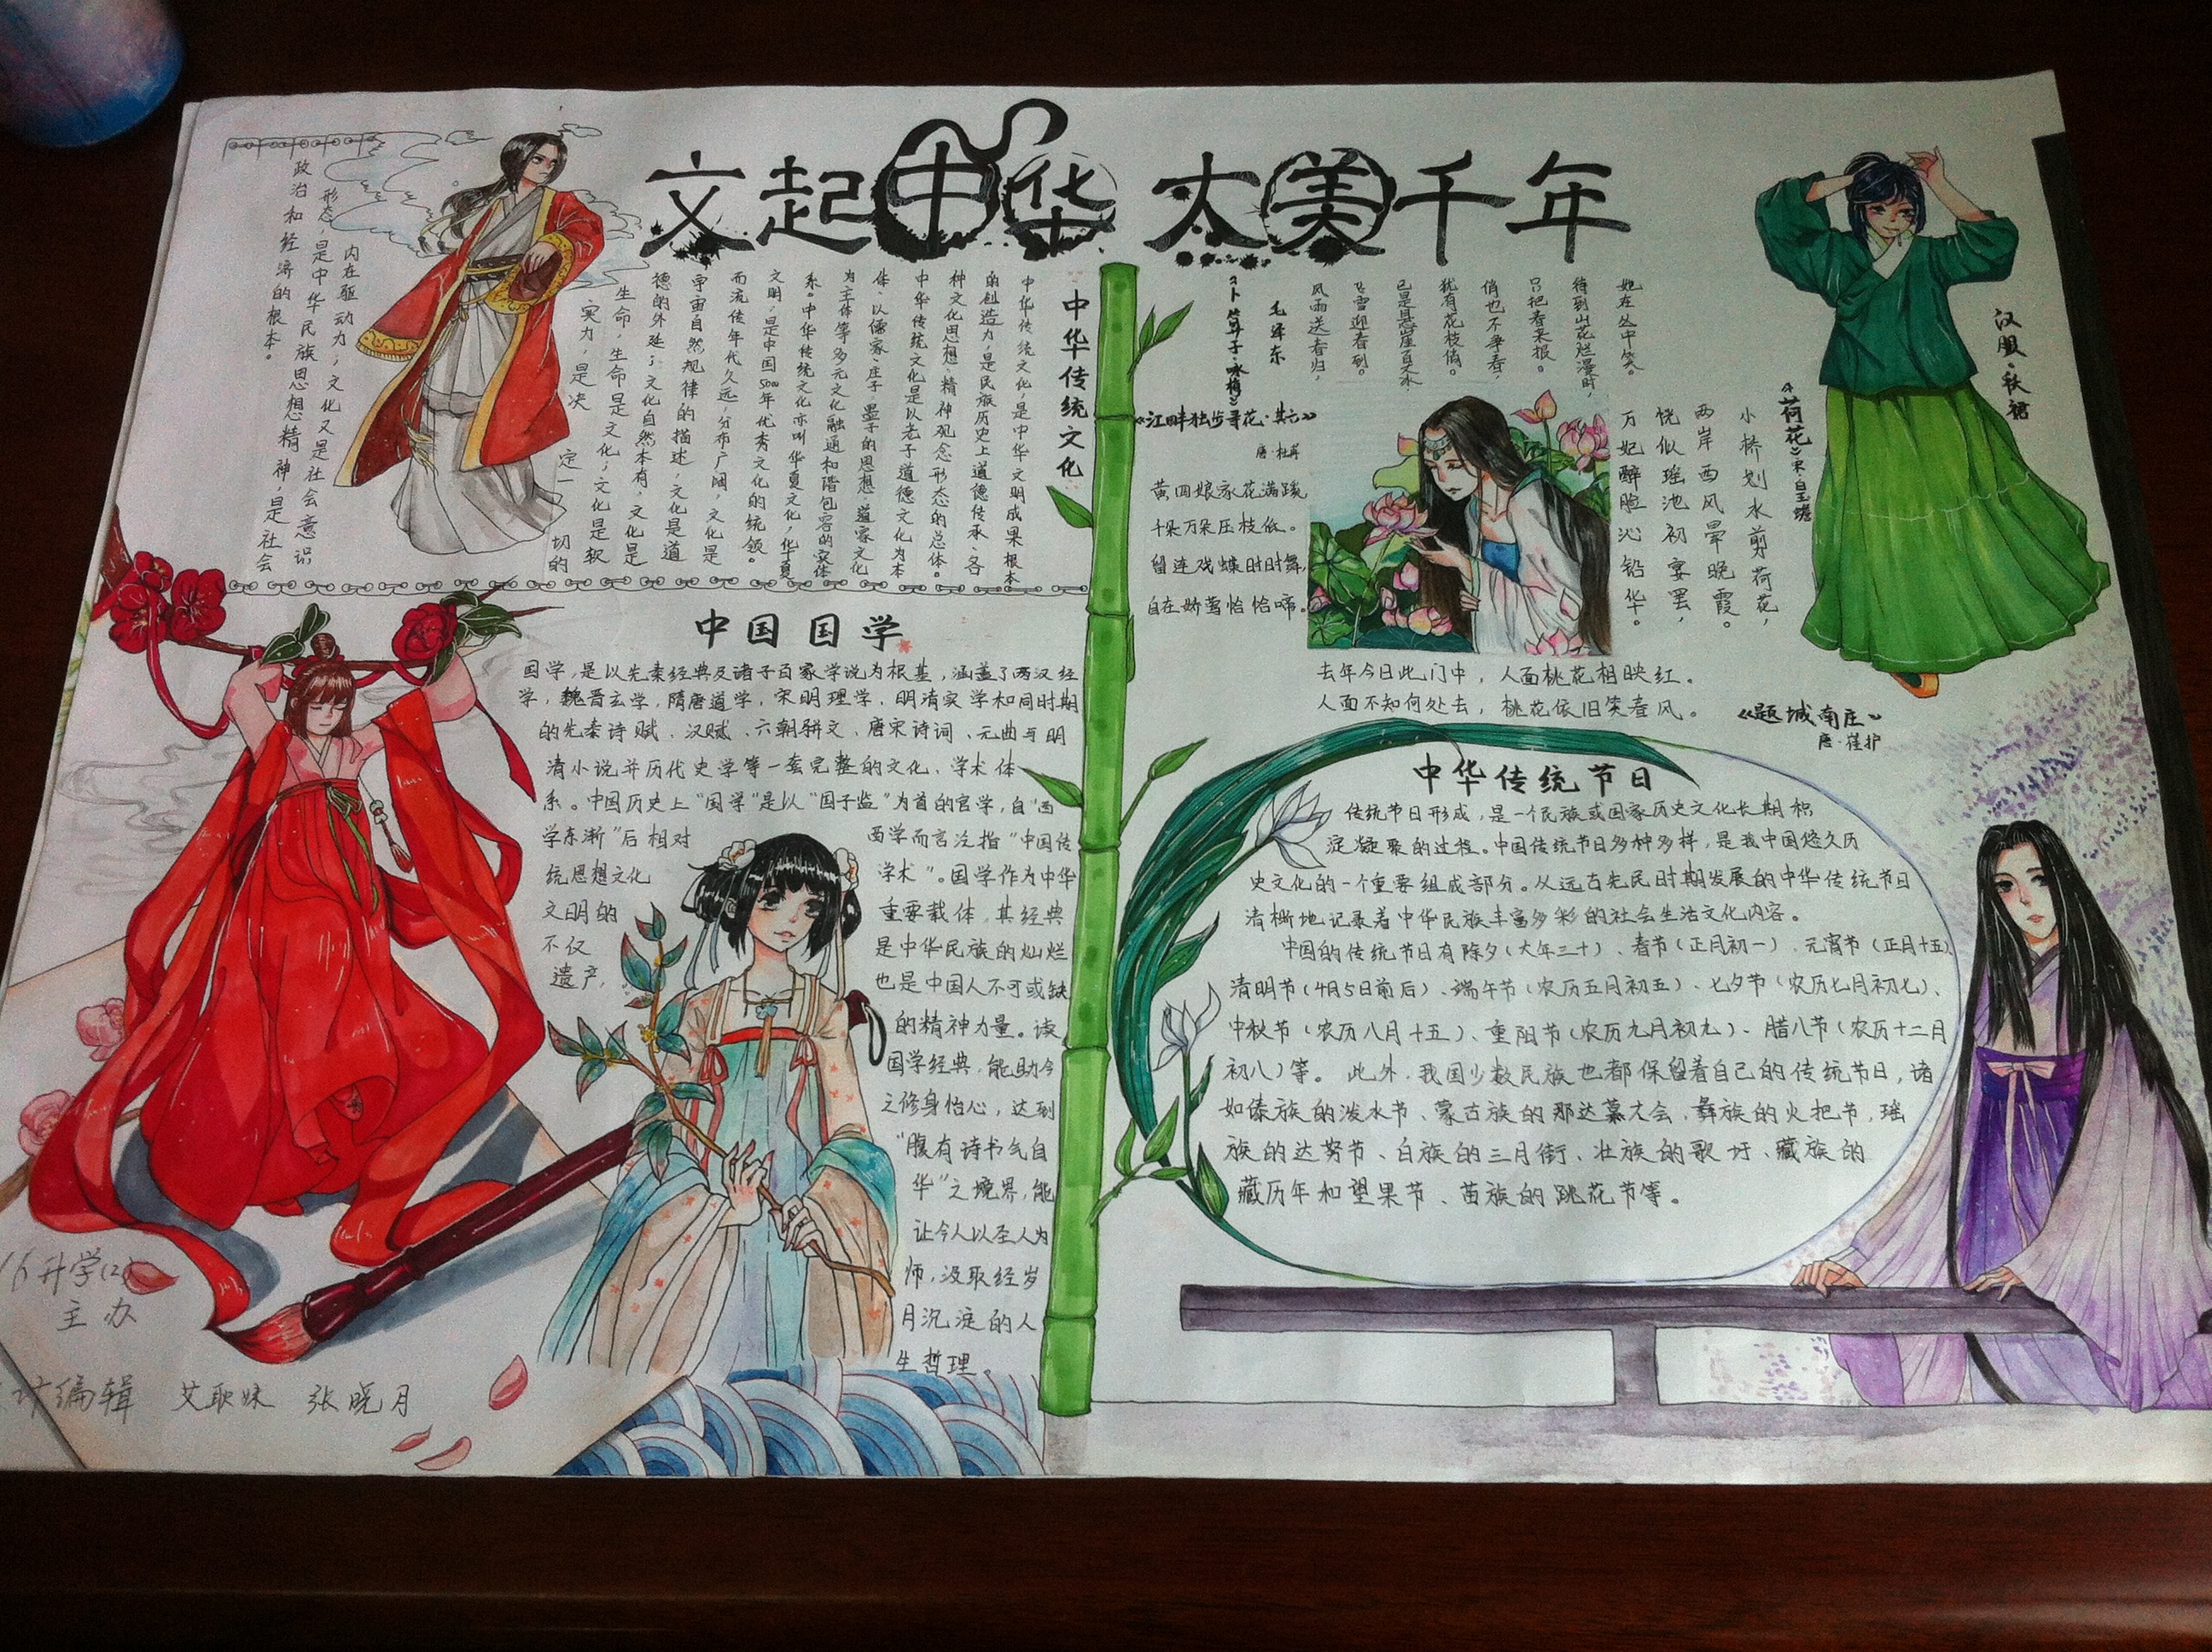 文起中华 太美千年
中华传统文化
中华传统文化,是中华文明成果根本
的创造力,是民族历史上道德传承、各
种文化思想、精神观念形态的总体。
中华传统文化是以老子道德文化为本
体、以儒家、庄子、墨子的思想、道家文化
为主体等多元文化融通和谐包容的实体
系。中华传统文化亦叫华夏文化,华夏
文明,是中国5000年优秀文化的统领。
而流传年代久远,分布广阔,文化是
宇宙自然规律的描述,文化是道
德的外延;文化自然本有,文化是
生命,生命是文化;文化是软
实力,是决定一切的
内在驱动力;文化又是社会意识
形态,是中华民族思想精神,是社会
政治和经济的根本。
中国国学
国学,是以先秦经典及诸子百家学说为根基,涵盖了两汉经
学,魏晋玄学,隋唐道学,宋明理学,明清实学和同时期
的先秦诗赋、汉赋、六朝骈文、唐宋诗词、元曲与明
清小说并历代史学等一套完整的文化、学术体
系。中国历史上“国学”是以“国子监”为首的官学,自“西
学东渐”后相对 西学而言泛指“中国传
统思想文化 学术”。国学作为中华
文明的 重要载体,其经典
不仅 是中华民族的灿烂
遗产, 也是中国人不可或缺
的精神力量。读
国学经典,能助今
之修身怡心,达到
“腹有诗书气自
华”之境界,能
让今人以圣人为
师,汲取经岁
月沉淀的人
生哲理。
16升学(2)
主办
编辑 艾耿妹 张晓月
《卜算子·咏梅》
毛泽东
风雨送春归,
飞雪迎春到。
已是悬崖百丈冰
犹有花枝俏。
俏也不争春,
只把春来报。
待到山花烂漫时,
她在丛中笑。
《江畔独步寻花·其六》
唐·杜甫
黄四娘家花满蹊
千朵万朵压枝低。
留连戏蝶时时舞,
自在娇莺恰恰啼。
汉服·秋裙
《荷花》宋·白玉蟾
小桥划水剪荷花,
两岸西风晕晚霞。
恍似瑶池初宴罢,
万妃醉脸沁铅华。
去年今日此门中,人面桃花相映红。
人面不知何处去,桃花依旧笑春风。
《题城南庄》
唐·崔护
中华传统节日
传统节日形成,是一个民族或国家历史文化长期积
淀凝聚的过程。中国传统节日多种多样,是我中国悠久历
史文化的一个重要组成部分。从远古先民时期发展的中华传统节日
清晰地记录着中华民族丰富多彩的社会生活文化内容。
中国的传统节日有除夕(大年三十)、春节(正月初一)、元宵节(正月十五)
清明节(4月5日前后)、端午节(农历五月初五)、七夕节(农历七月初七)、
中秋节(农历八月十五)、重阳节(农历九月初九)、腊八节(农历十二月
初八)等。此外,我国少数民族也都保留着自己的传统节日,诸
如傣族的泼水节、蒙古族的那达慕大会、彝族的火把节,瑶
族的达努节、白族的三月街、壮族的歌圩、藏族的
藏历年和望果节、苗族的跳花节等。